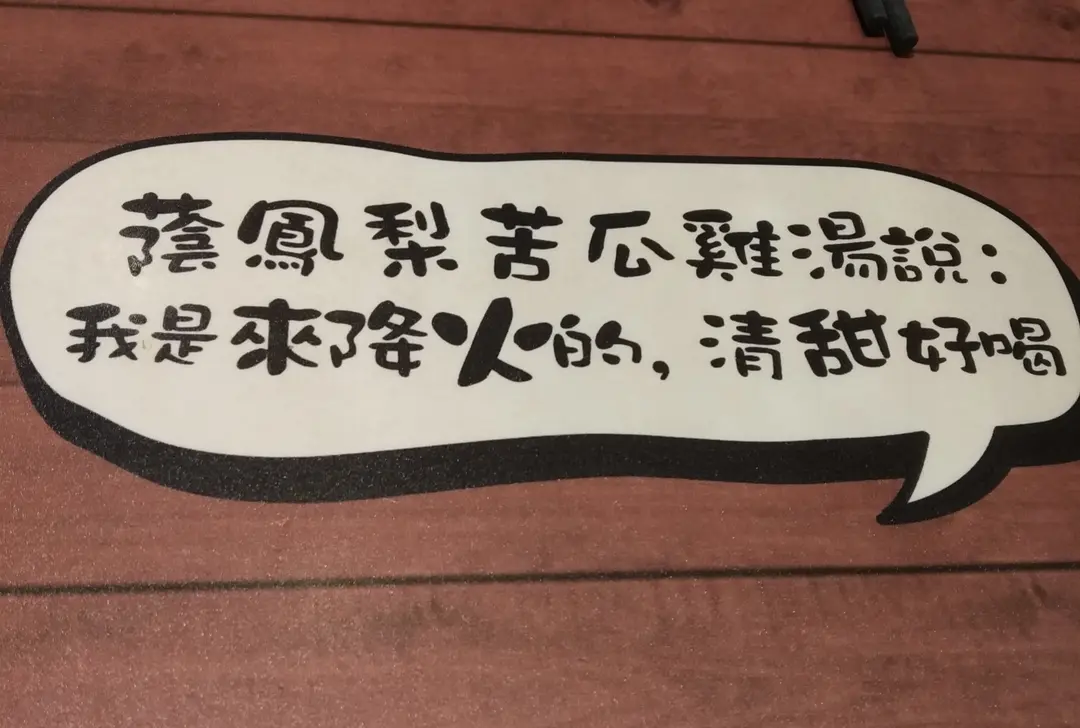 蔭鳳梨苦瓜雞湯說：
我是來降火的，清甜好喝